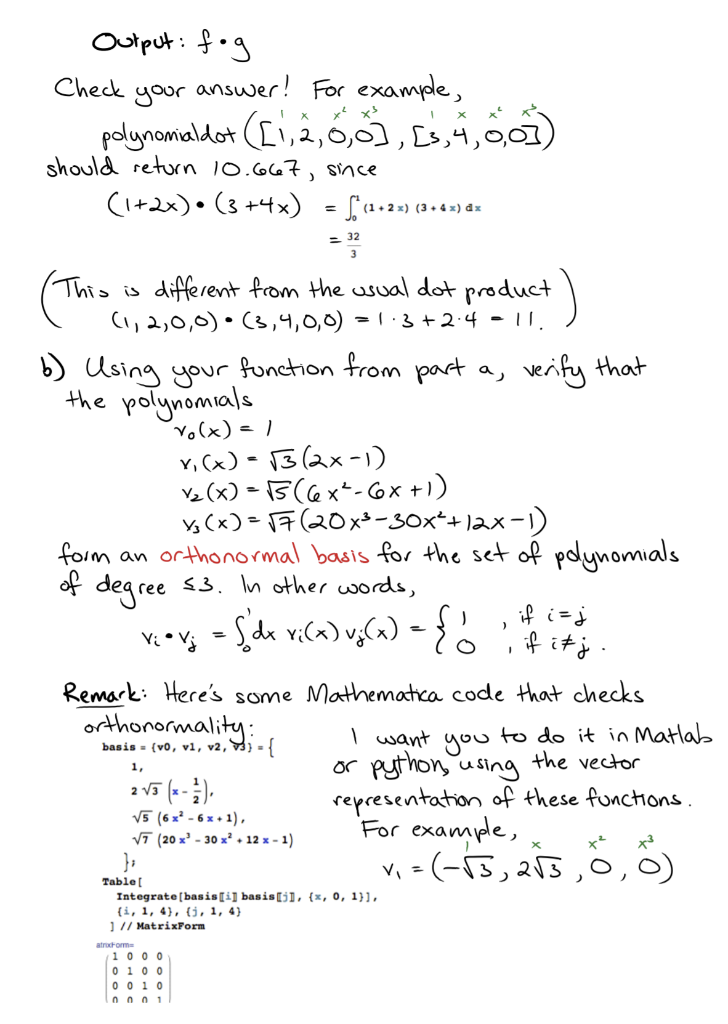 Output: f • g
Check your answer! For example,
1 x x² x³ 1 x x² x³
polynomialdot ([1,2,0,0], [3,4,0,0])
should return 10.667, since
(1+2x) • (3+4x) = ∫₀¹ (1 + 2 x) (3 + 4 x) dx
= 32/3
(This is different from the usual dot product
(1,2,0,0) • (3,4,0,0) = 1·3 + 2·4 = 11.)
b) Using your function from part a, verify that
the polynomials
v₀(x) = 1
v₁(x) = √3(2x-1)
v₂(x) = √5(6x²-6x+1)
v₃(x) = √7(20x³-30x²+12x-1)
form an orthonormal basis for the set of polynomials
of degree ≤3. In other words,
vᵢ • vⱼ = ∫₀¹ dx vᵢ(x) vⱼ(x) = { 1 , if i=j
0 , if i≠j .
Remark: Here's some Mathematica code that checks
orthonormality:
basis = {v0, v1, v2, v3} = {
1,
2 √3 (x - 1/2),
√5 (6 x² - 6 x + 1),
√7 (20 x³ - 30 x² + 12 x - 1)
};
Table[
Integrate[basis[[i]] basis[[j]], {x, 0, 1}],
{i, 1, 4}, {j, 1, 4}
] // MatrixForm
atrixForm=
1 0 0 0
0 1 0 0
0 0 1 0
0 0 0 1
I want you to do it in Matlab
or python, using the vector
representation of these functions.
For example,
1 x x² x³
v₁ = (-√3, 2√3, 0, 0)